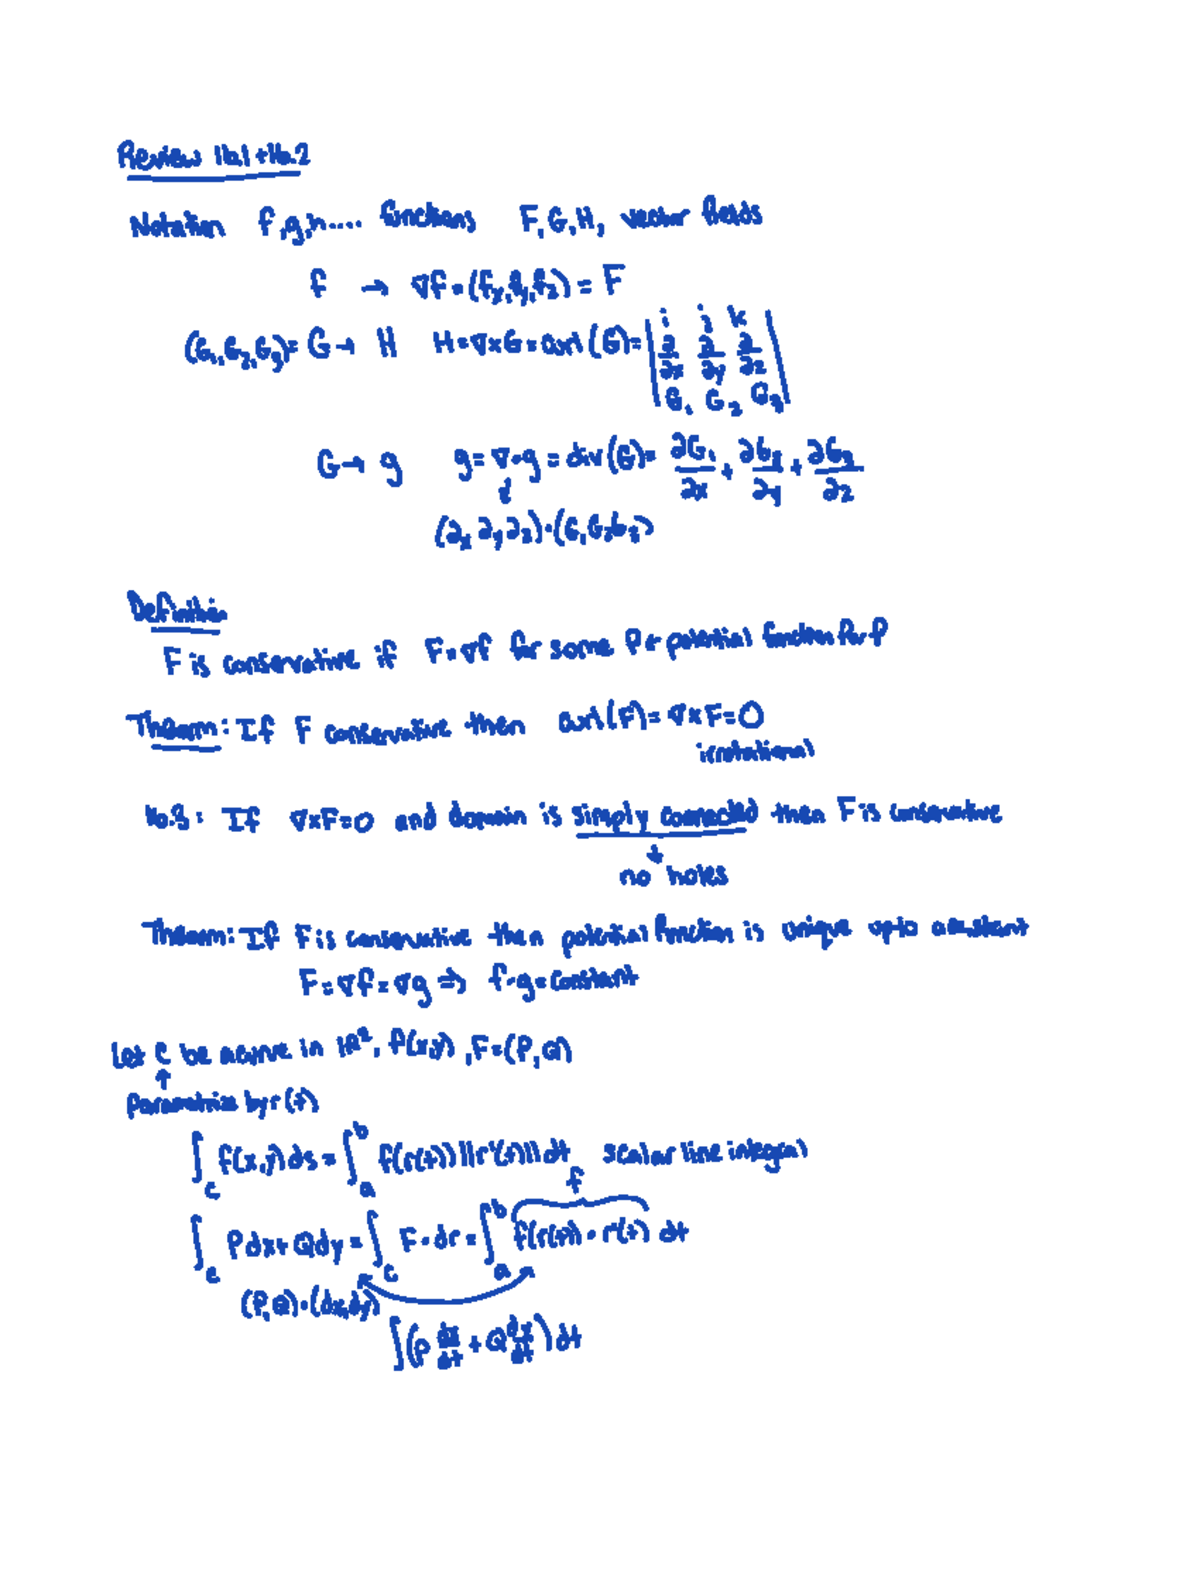 Review 16.1 + 16.2
Notation f, g, h .... functions F, G, H, vector fields
f → ∇f = (fx, fy, fz) = F
(G₁, G₂, G₃) = G → H H = ∇×G = curl (G) = | i j k |
| ∂/∂x ∂/∂y ∂/∂z |
| G₁ G₂ G₃ |
G → g g = ∇·g = div (G) = ∂G₁/∂x + ∂G₂/∂y + ∂G₃/∂z
(∂x ∂y ∂z)·(G₁ G₂ G₃)
Definition
F is conservative if F = ∇f for some f ← potential function for f
Theorm: If F conservative then curl (F) = ∇×F = 0
irrotational
16.3: If ∇×F = 0 and domain is simply connected then F is conservative
↓
no holes
Theorm: If F is conservative then potential function is unique up to a constant
F = ∇f = ∇g ⇒ f - g = constant
Let C be a curve in ℝ², f(x,y), F = (P, Q)
↑
Parametrize by r(t)
∫_C f(x,y) ds = ∫_a^b f(r(t)) ||r'(t)|| dt scalar line integral
f
∫_C P dx + Q dy = ∫_C F · dr = ∫_a^b f(r(t)) · r'(t) dt
(P, Q)·(dx, dy)
∫(P dx/dt + Q dy/dt) dt